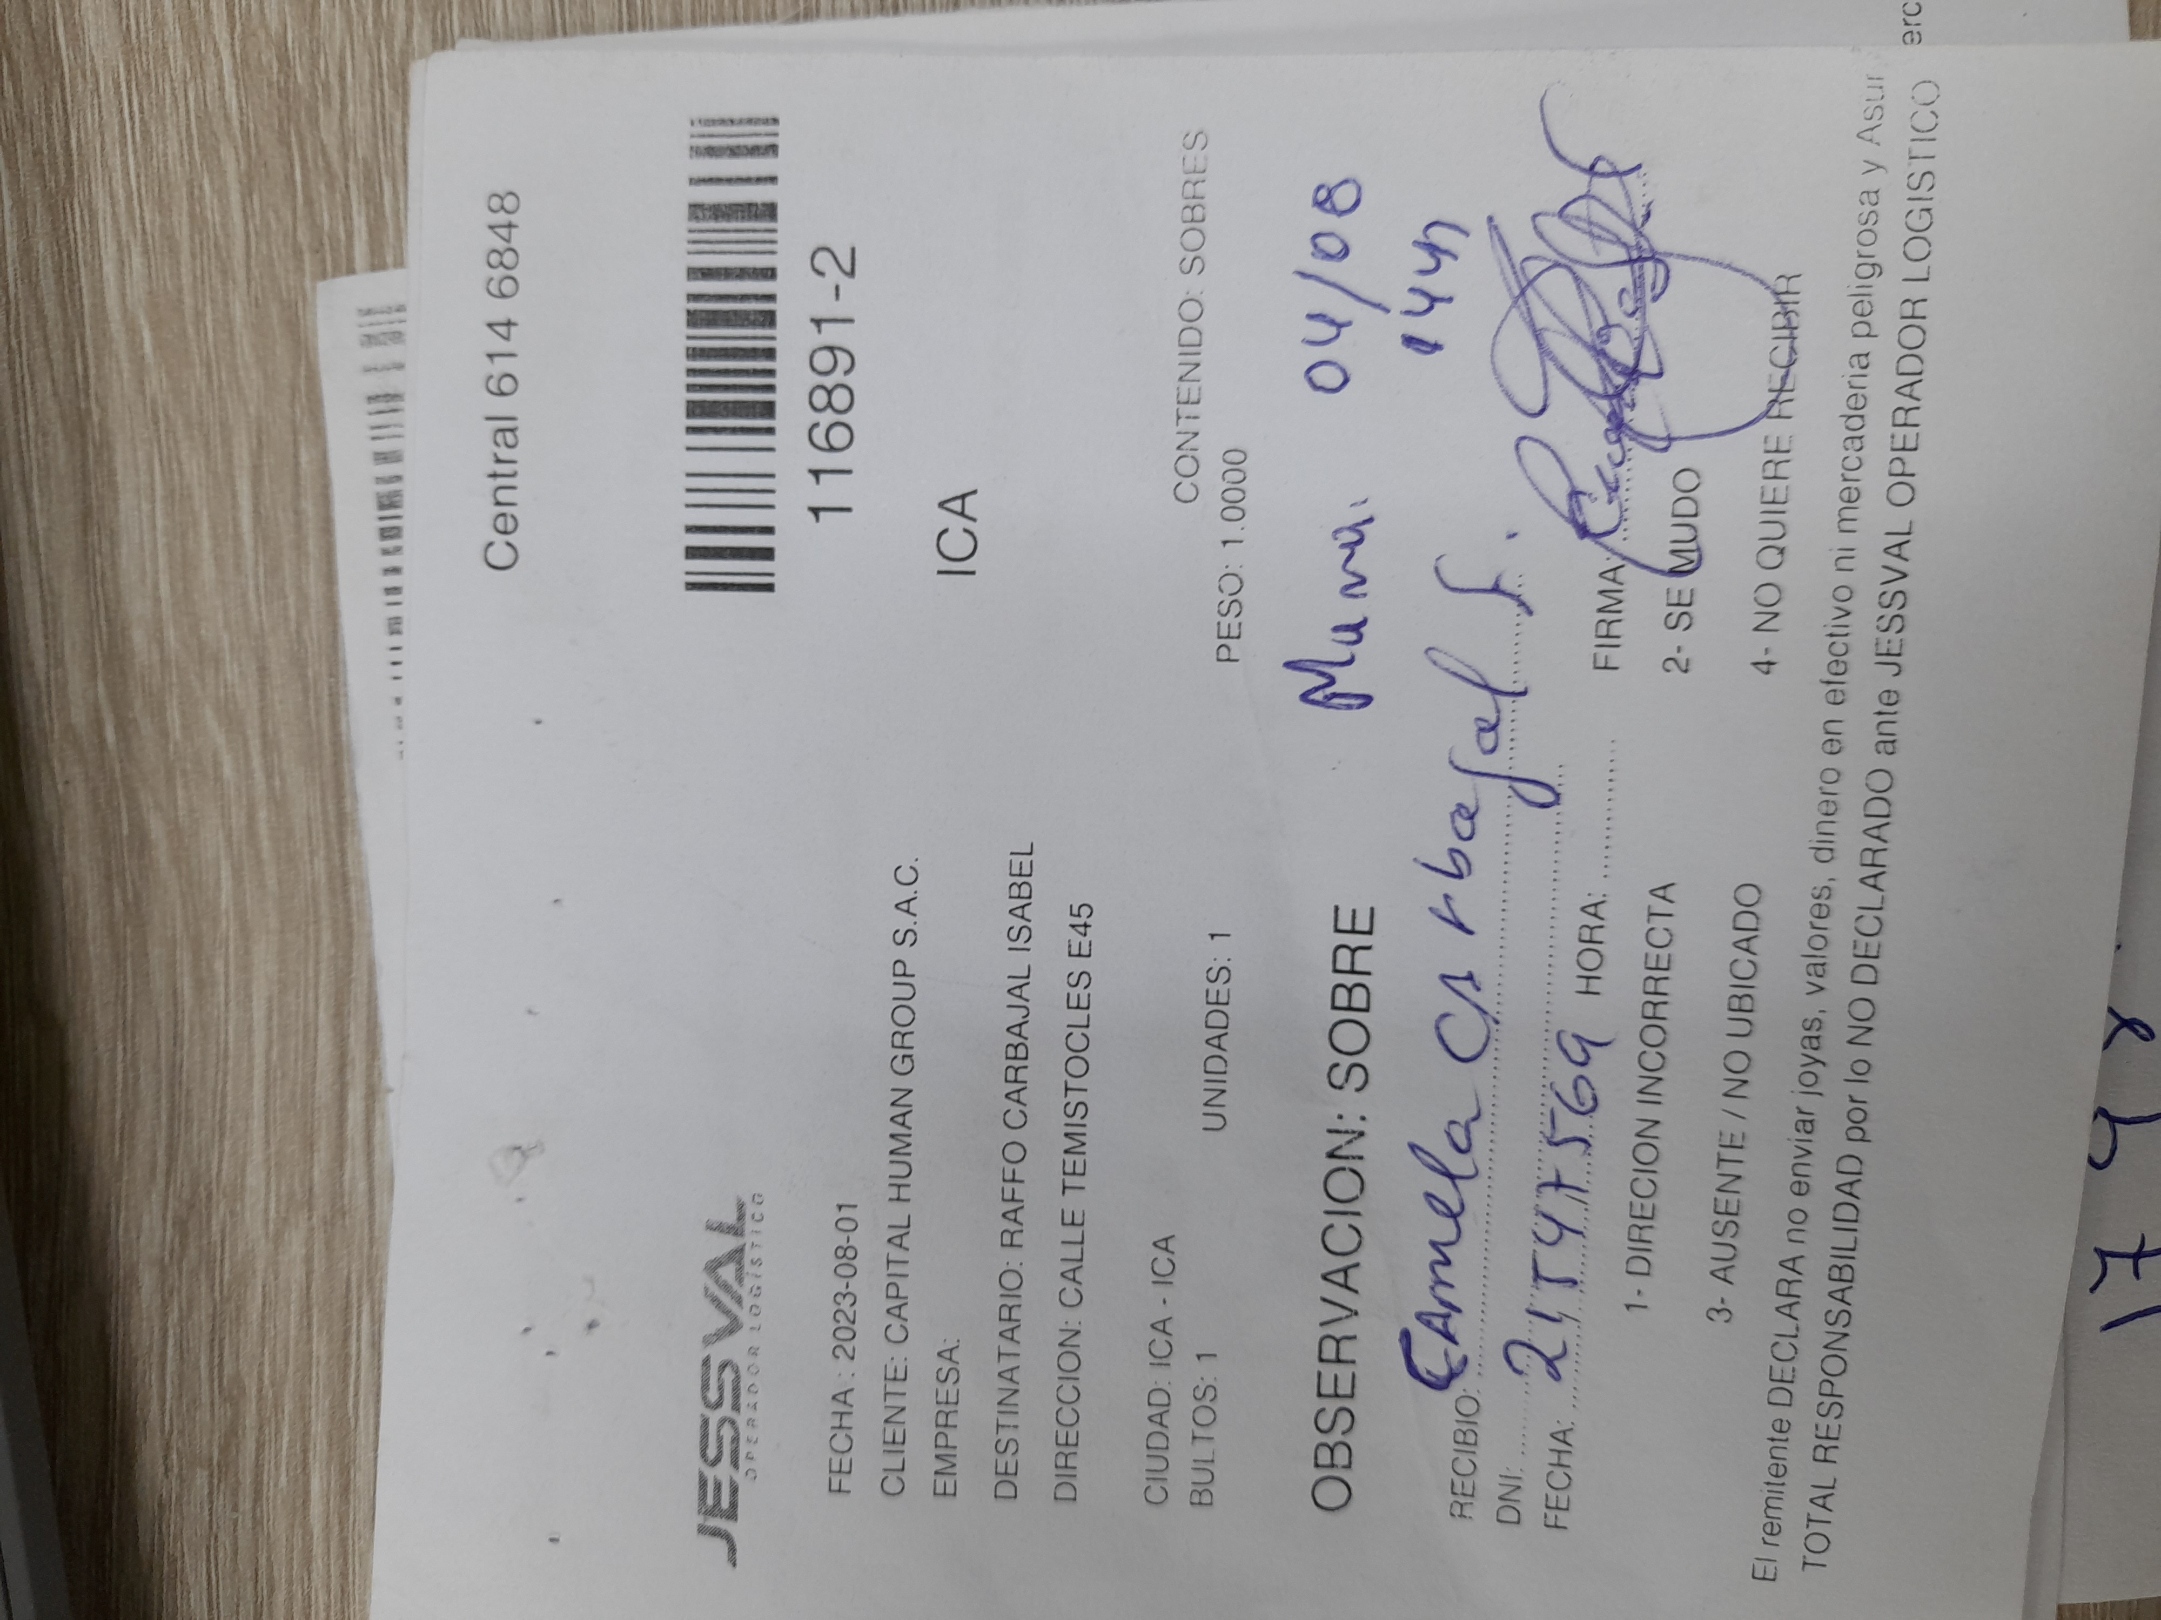 Central 614 6848
JESSVAL
OPERADOR LOGISTICO
116891-2
FECHA : 2023-08-01
CLIENTE: CAPITAL HUMAN GROUP S.A.C.
EMPRESA:
ICA
DESTINATARIO: RAFFO CARBAJAL ISABEL
DIRECCION: CALLE TEMISTOCLES E45
CIUDAD: ICA - ICA
CONTENIDO: SOBRES
BULTOS: 1 UNIDADES: 1 PESO: 1.0000
OBSERVACION: SOBRE
04/08
RECIBIO: CArmela CArbajal
DNI:
FECHA: HORA: FIRMA:
1- DIRECION INCORRECTA 2- SE MUDO
3- AUSENTE / NO UBICADO 4- NO QUIERE RECIBIR
El remitente DECLARA no enviar joyas, valores, dinero en efectivo ni mercaderia peligrosa y Asur
TOTAL RESPONSABILIDAD por lo NO DECLARADO ante JESSVAL OPERADOR LOGISTICO
erc